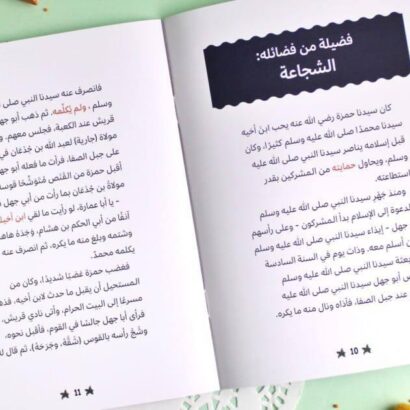 فضيلة من فضائله:
الشجاعة
كان سيدنا حمزة رضي الله عنه يحب ابن أخيه
سيدنا محمدًا صلى الله عليه وسلم كثيرًا، وكان
قبل إسلامه يناصر سيدنا النبي صلى الله عليه
وسلم، ويحاول حمايته من المشركين بقدر
استطاعته.
ومنذ جَهَر سيدنا النبي صلى الله عليه وسلم
بالدعوة إلى الإسلام بدأ المشركون - وعلى رأسهم
جهل - إيذاء سيدنا النبي صلى الله عليه وسلم
من أسلم معه. وذات يوم في السنة السادسة
بعثة سيدنا النبي صلى الله عليه
عند جبل الصفا، فآذاه ونال منه ما يكره.
10
فانصرف عنه سيدنا النبي صلى
وسلم، ولم يُكلِّمه، ثم ذهب أبو جهل
قريش عند الكعبة، فجلس معهم.
مولاة (جارية) لعبد الله بن جُدْعَان في
على جبل الصفا، فرأت ما فعله أبو جهل
أقبل حمزة من القَنَص مُتوشِّحًا قوسه
مولاةُ بن جُدْعَان بما رأت من أبي جهل
- يا أبا عمارة، لو رأيت ما لقي ابن أخيك
آنفًا من أبي الحكم بن هشام، وَجَدَهُ هاهنا
وشتمه وبلغ منه ما يكره، ثم انصرف عنه
يكلمه محمدٌ.
فغضب حمزة غضبًا شديدًا، وكان من
المستحيل أن يقبل ما حدث لابن أخيه،
مسرعًا إلى البيت الحرام، وأتى نادي قريش،
فرأى أبا جهل جالسًا في القوم، فأقبل نحوه،
وشَجَّ رأسه بالقوس (شَقَّهُ، وجَرَحَهُ)، ثم قال له
11